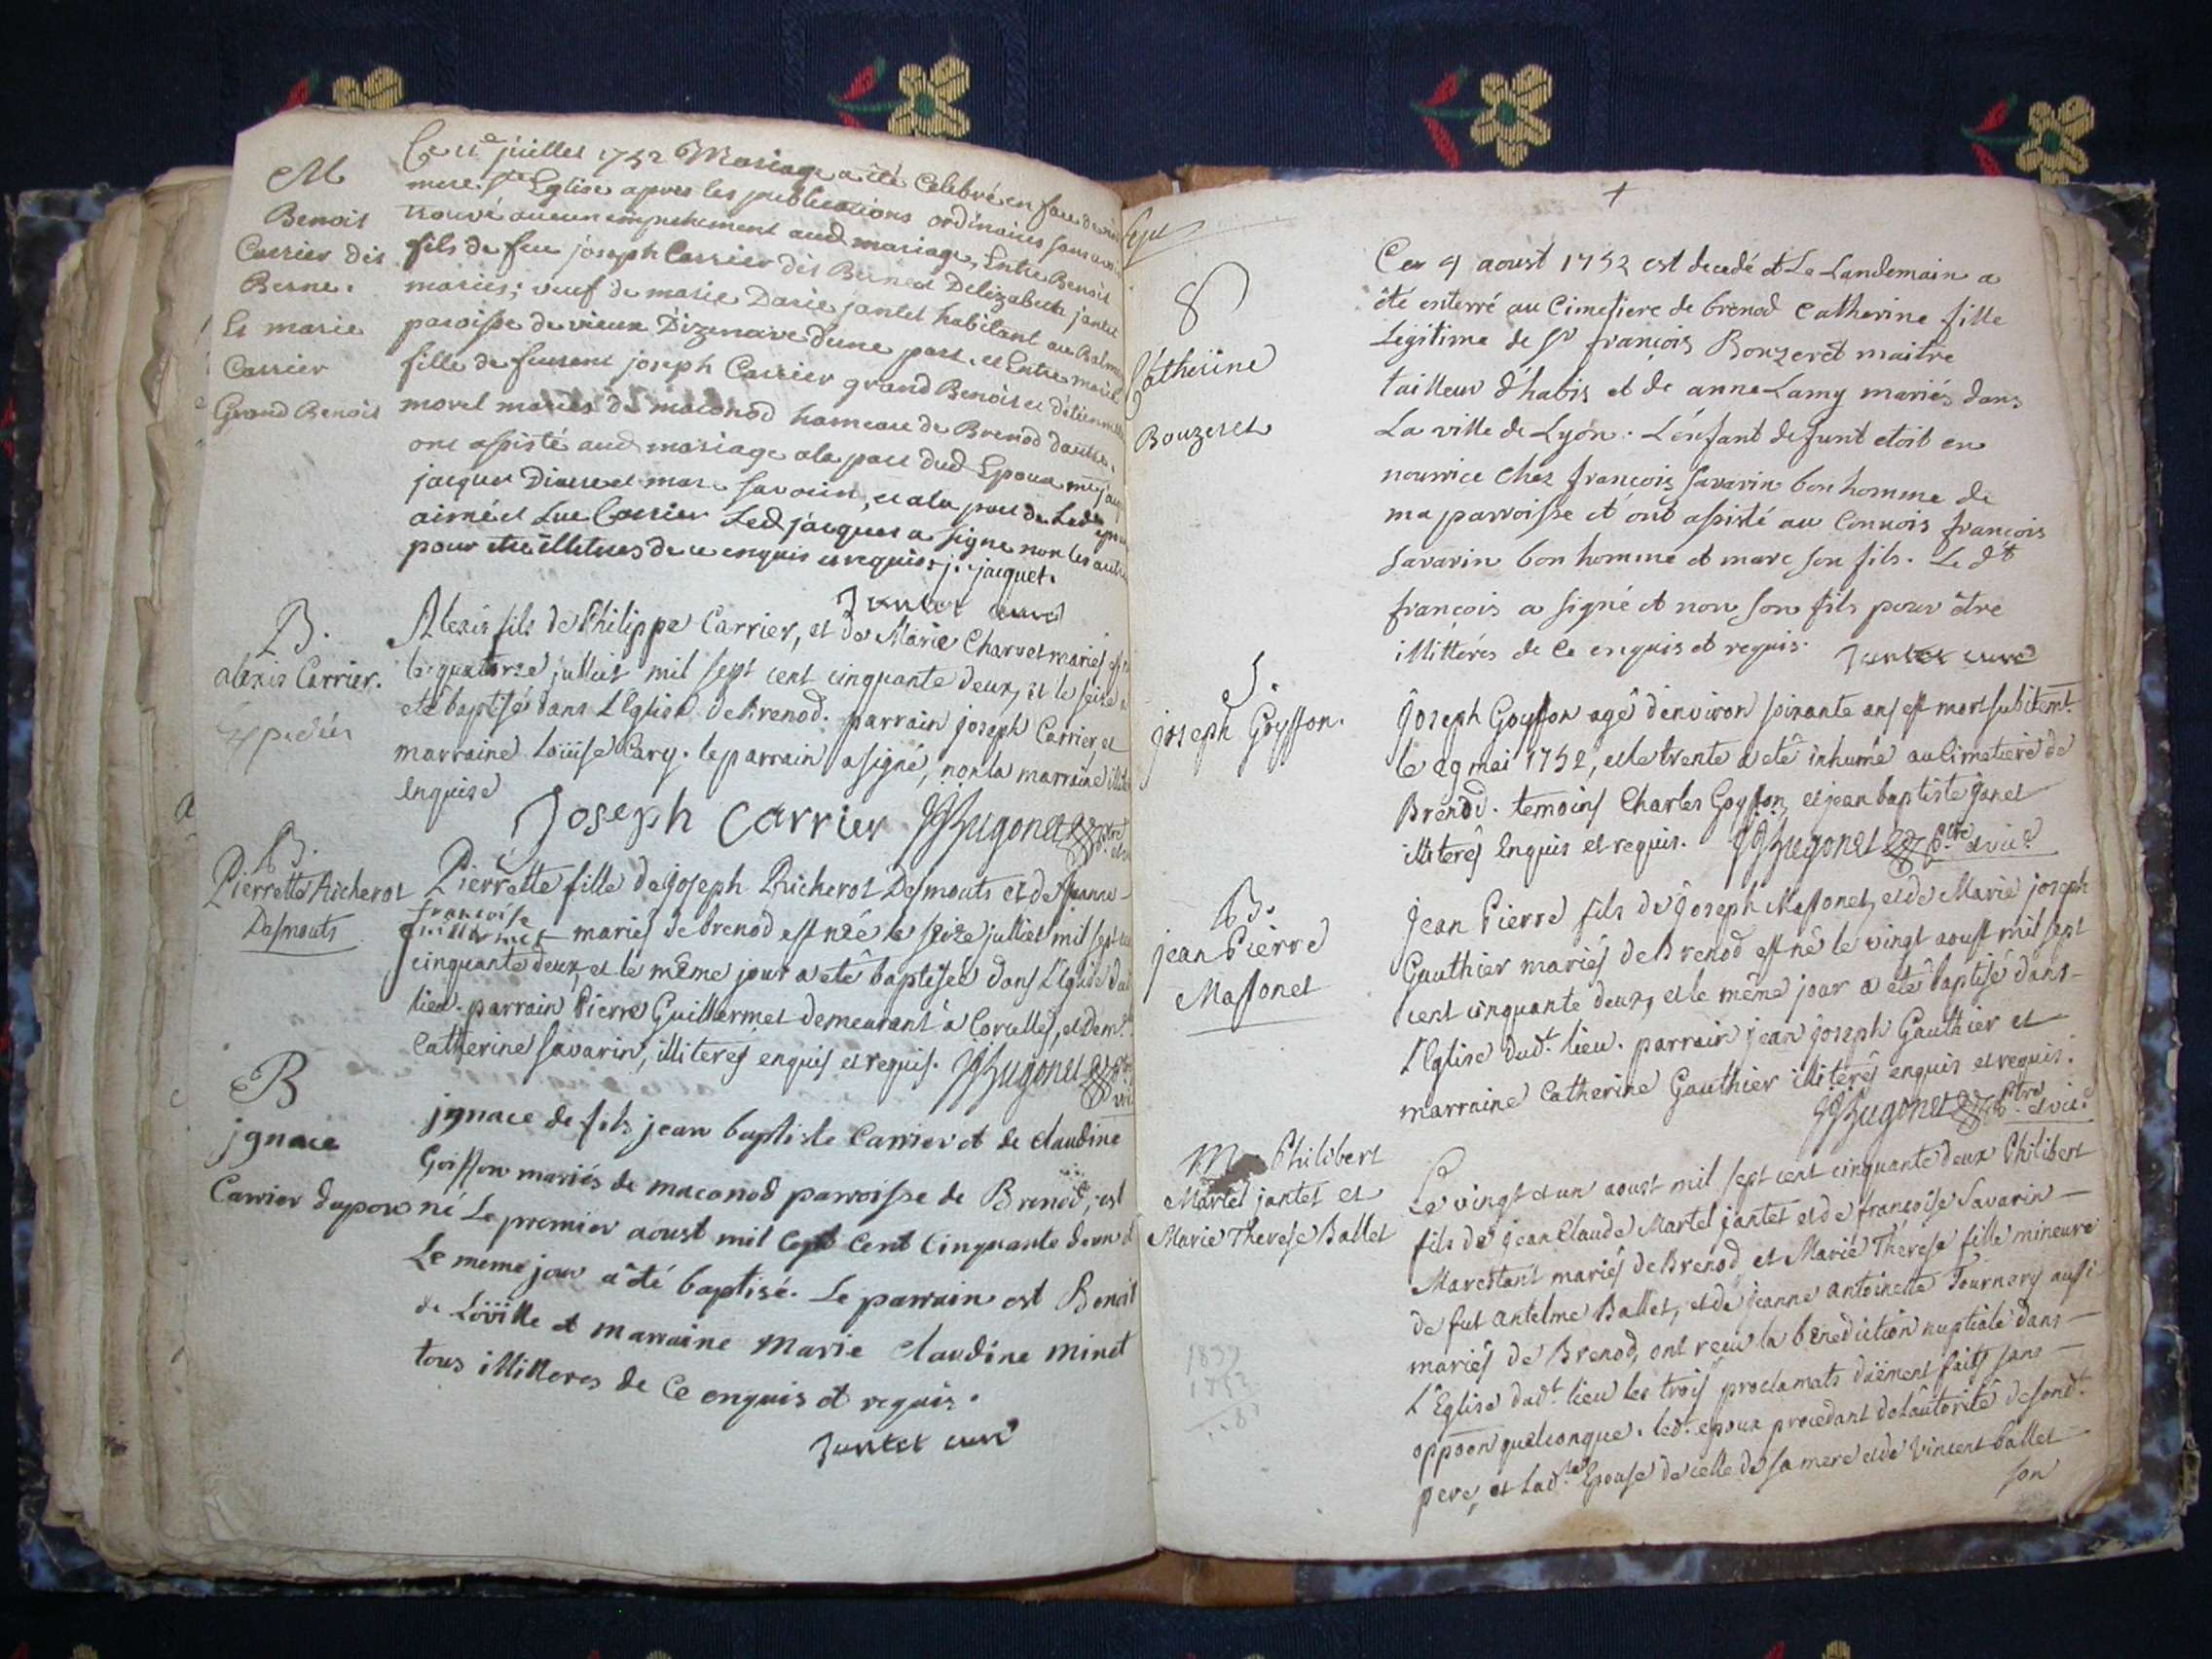 M
Benoit
Carrier dit
Berne.
Et marie
Carrier
Grand Benoit
Ce 11e juillet 1752 Mariage a été Celebré en face de
mere Ste Eglise apres les publications ordinaires sans avoir
trouvé aucun empechement aud mariage, Entre Benoit
fils de feu joseph Carrier dit Berne et Delizabeth jantet
mariés; veuf de marie Darie jantet habitant au Balmay
paroisse de vieux Dizenave dune part. et Entre marie
fille de feu joseph Carrier grand Benoit et détiennette
morel mariés de maconod hameau de Brenod dautre.
ont assisté aud mariage ala part dud Epoux
jacques et marc savarin, et ala part de Led
aimé et Luc Carrier Led jacques a signé non les autres
pour etre illiteres de ce enquis et requis. j. jacquet.
Jantet curé
B.
alexis Carrier.
Expedié
Alexis fils de Philippe Carrier, et de Marie Charvet mariés
le quatorze julliet mil sept cent cinquante deux, et le seize a
eté baptisé dans L'Eglise de Brenod. parrain joseph Carrier et
marraine Louise Cary. le parrain a signé, non la marraine
Enquise
Joseph Carrier JJHugonet
B.
Pierrette Richerot
Desmouts
Pierrette fille de Joseph Richerot Desmouts et de Jeanne
françoise
Guillermet mariés de brenod est née le seize julliet mil sept
cinquante deux, et le même jour a eté baptisée dans L'Eglise
lieu. parrain Pierre Guillermet demeurant a Corcelles, et dem.lle
Catherine savarin, illiterés enquis et requis. JJHugonet
B
jgnace
Carrier dupon
jgnace de fils jean baptiste Carrier et de claudine
Goiffon mariés de maconod parroisse de Brenod, est
né Le premier aoust mil sept cent cinquante deux et
Le meme jour a été baptisé. Le parrain est Benoit
de Loüille et marraine Marie claudine minet
tous illitteres de Ce enquis et requis.
Jantet curé
+
Catherine
Bouzeret
Ce 9 aoust 1752 est decedé et Le Landemain a
été enterré au Cimetiere de brenod Catherine fille
Légitime de Sr françois Bouzeret maitre
tailleur d'habis et de anne Lamy mariés dans
La ville de Lyon. L'enfant defunt etoit en
nourrice chez françois Savarin bon homme de
ma parroisse et ont assisté au Convois françois
Savarin bon homme et marc son fils. Le dt
françois a signé et non son fils pour être
illittérés de Ce enquis et requis. Jantet curé
S.
joseph Goyffon.
Joseph Goyffon agé denviron soixante ans est mort subitemt.
le 29 mai 1752, et le trente a eté inhumé au Cimetiere de
Brenod. temoins Charles Goyffon, et jean baptiste Janet
illiterés Enquis et requis. JJHugonet Ptre et vic.
B.
jean Pierre
Massonet
Jean Pierre fils de Joseph Massonet, et de Marie joseph
Gauthier mariés de Brenod est né le vingt aoust mil sept
cent cinquante deux, et le même jour a eté baptisé dans
L'Eglise dudt. lieu. parrain jean joseph Gauthier et
marraine Catherine Gauthier illiterés enquis et requis.
JJHugonet Ptre et vic.
M Philibert
Martel jantet et
Marie Therese Ballet
Le vingt et un aoust mil sept cent cinquante deux Philibert
fils de Jean Claude Martel jantet et de françoise Savarin
Marestant mariés de Brenod et Marie Thérese fille mineure
de fut antelme Ballet, et de jeanne antoinette Tournery aussi
mariés de Brenod, ont reçu la bénédiction nuptiale dans
L'Eglise dudt. lieu les trois proclamats düement faits sans
oppoon quelconque. led. epoux procedant de L'autorité de sondt.
pere, et Ladte. Epouse de celle de sa mere et de Vincent ballet
son
1752